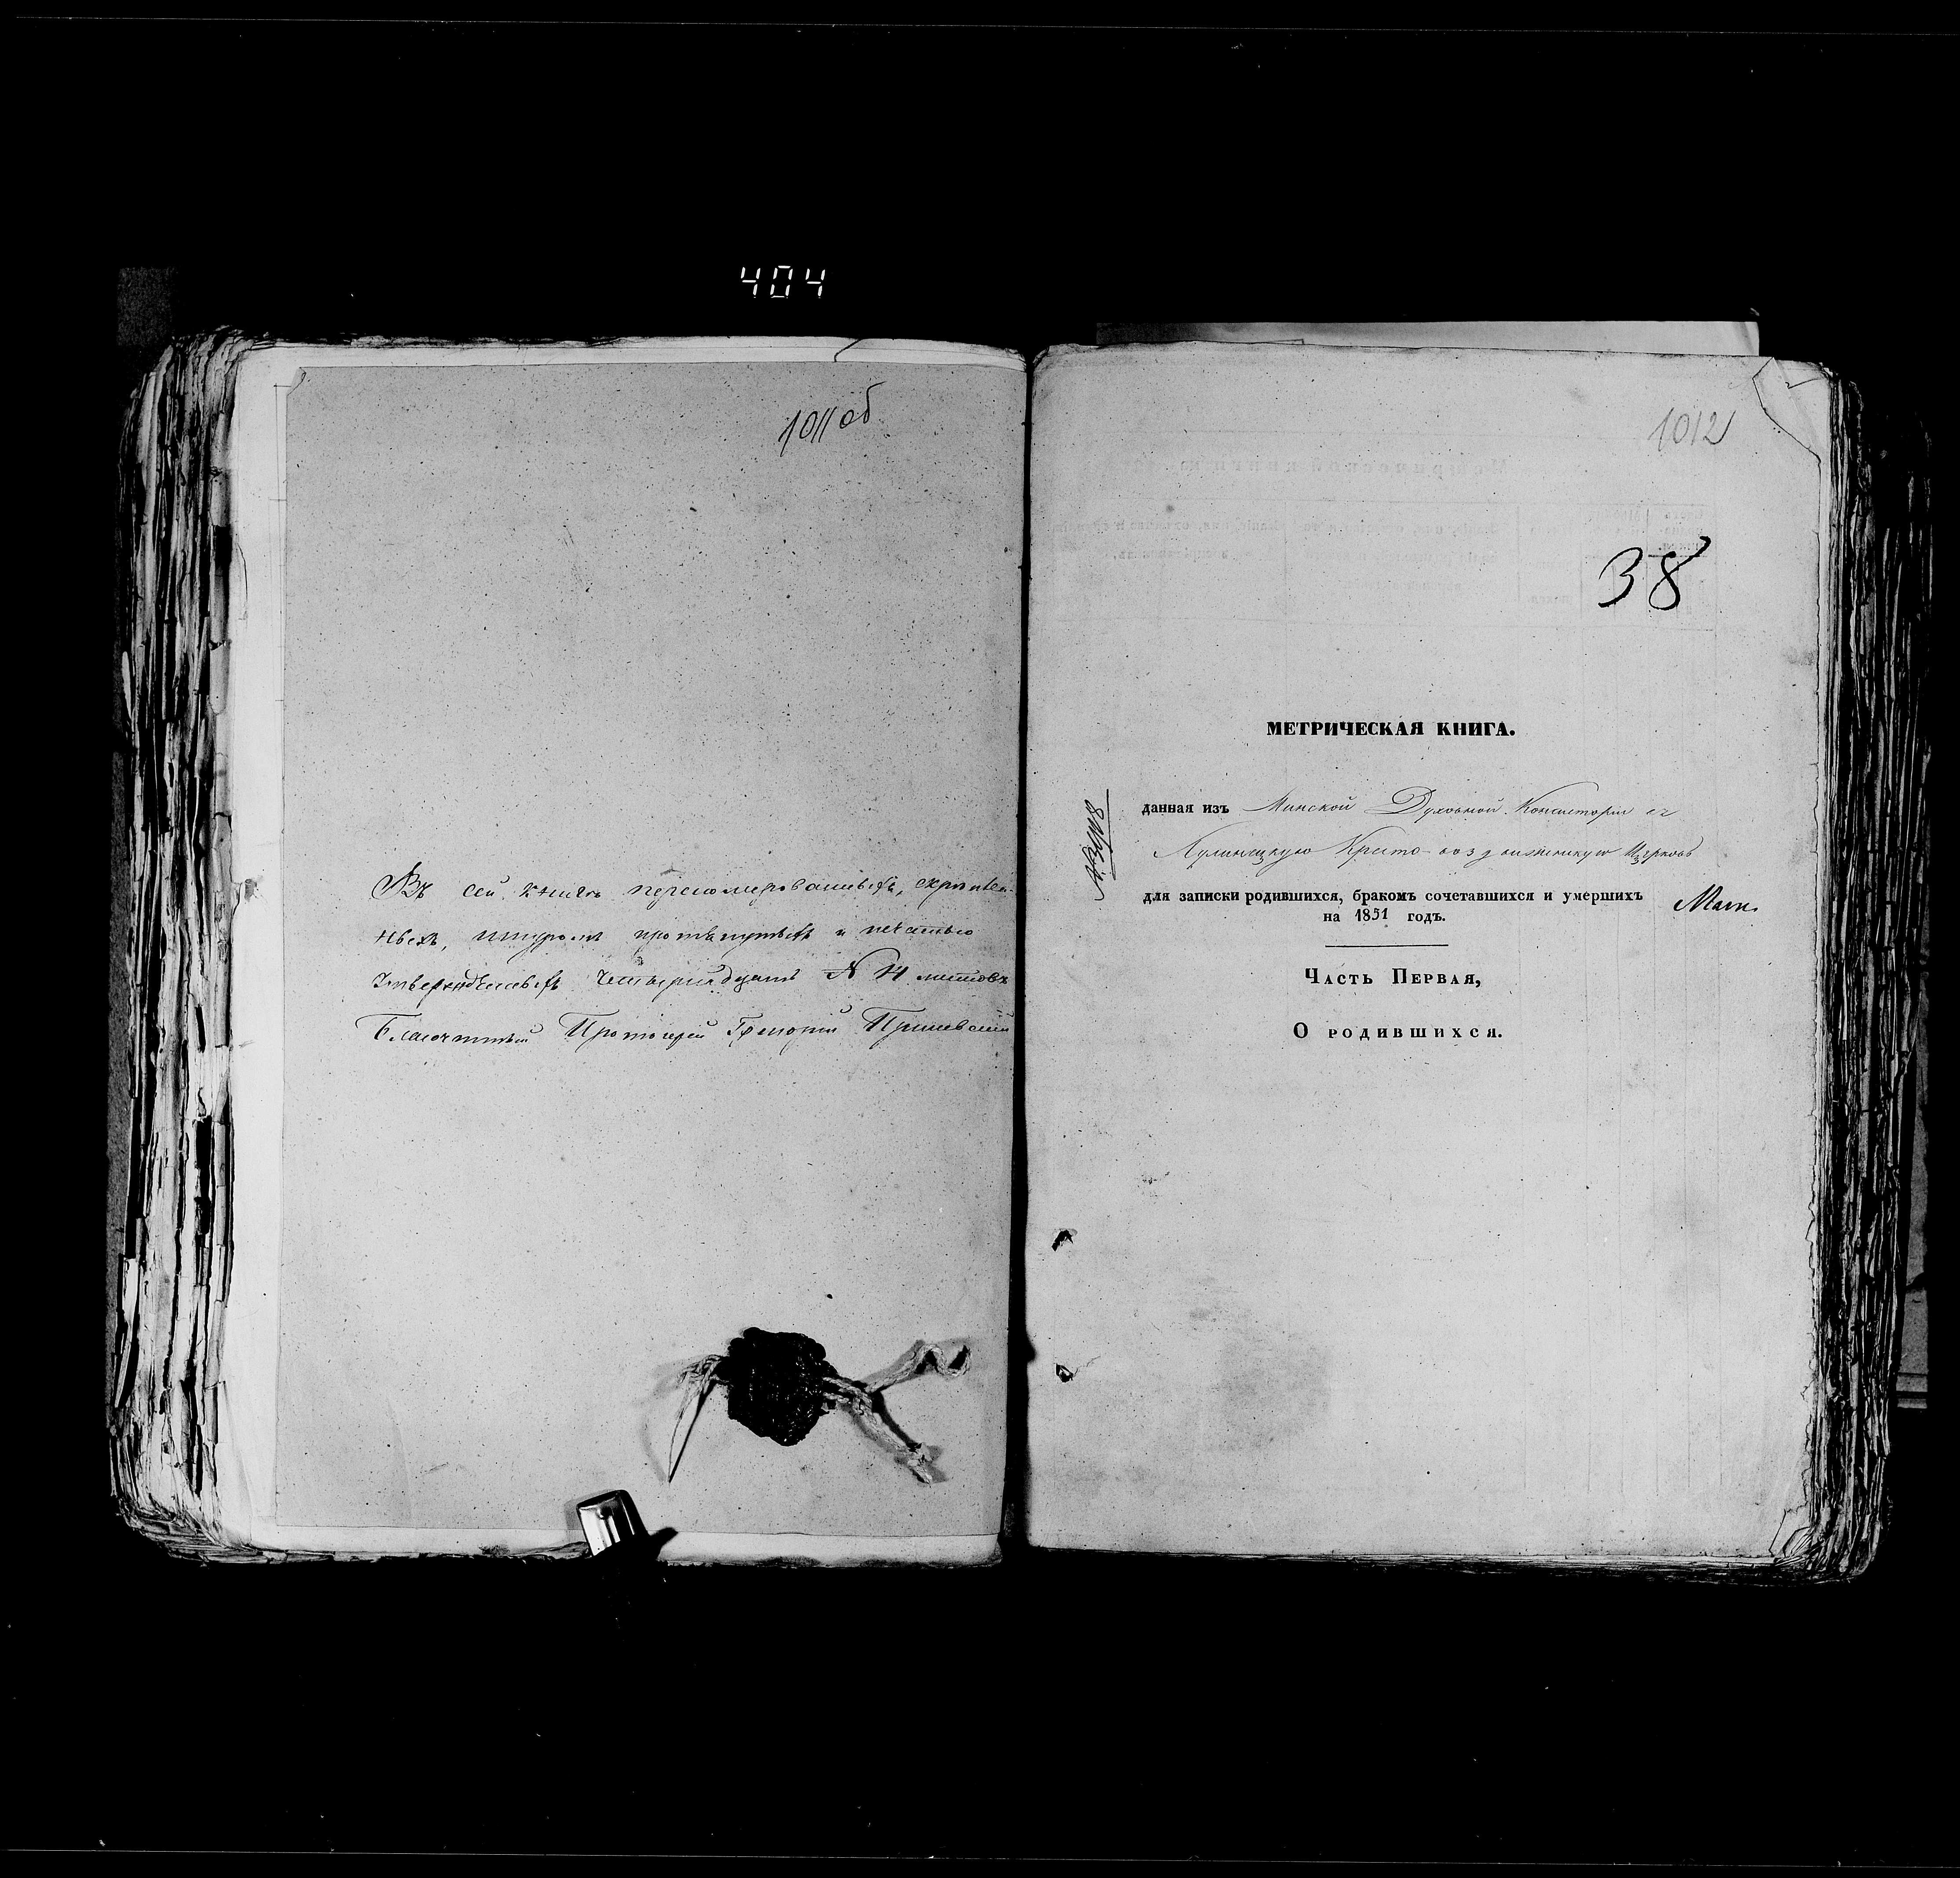 404
1011 об
Въ сей книгѣ перенумерованныхъ, скрѣплен-
ныхъ, шнуромъ протянутыхъ и печатью
Утвержденныхъ Четырнадцать N 14 листовъ
Благочинный Протоіерей Григорій
1012
38
МЕТРИЧЕСКАЯ КНИГА.
данная изъ Минской Духовной Консисторіи въ
Лулинецкую Кресто-воздвиженскую Церковь
для записки родившихся, бракомъ сочетавшихся и умершихъ
на 1851 годъ.
Часть Первая,
О родившихся.